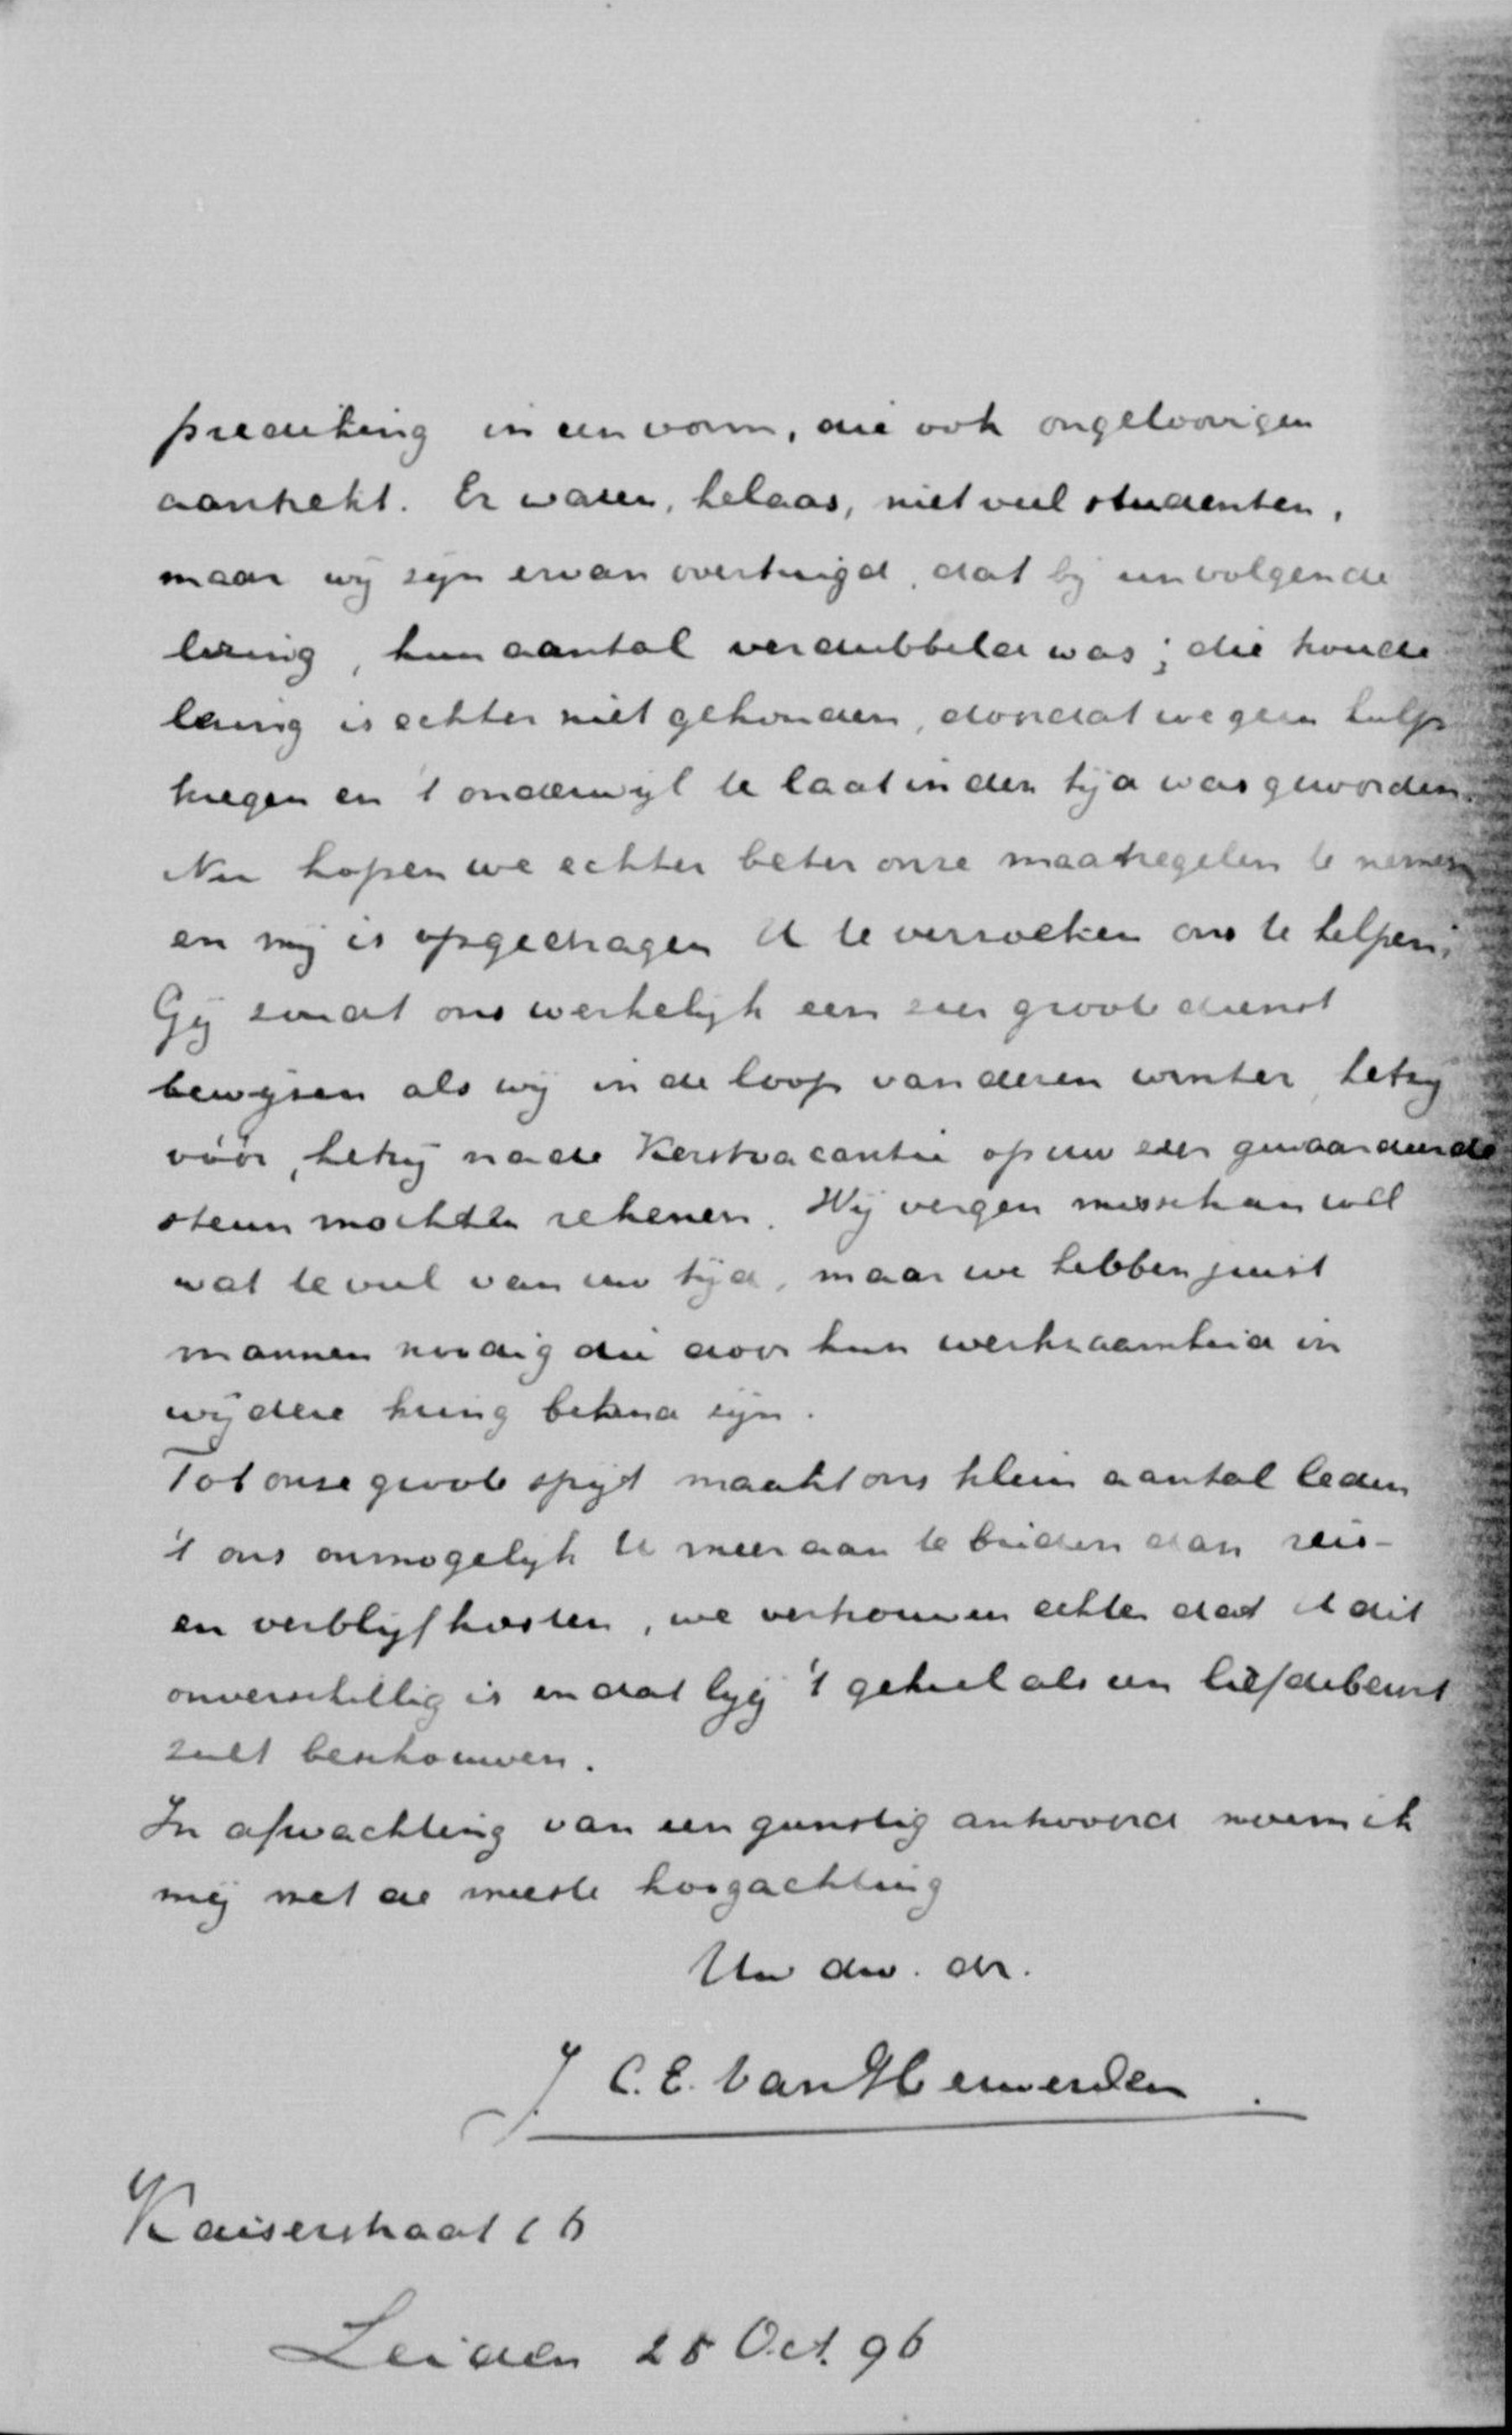 prediking in een vorm, die ook ongeloovigen
aantrekt. Er waren, helaas, niet veel studenten,
maar wij zijn ervan overtuigd, dat bij een volgende
lezing, hun aantal verdubbeld was; die tweede
lezing is echter niet gehouden, doordat we geen hulp
kregen en 't onderwijl te laat in den tijd was geworden.
Nu hopen we echter beter onze maatregelen te nemen
en mij is opgedragen U te verzoeken ons te helpen.
Gij zoudt ons werkelijk een zeer groote dienst
bewijzen als wij in de loop van dezen winter, hetzij
vóór, hetzij na de Kerstvacantie op uw zeer gewaardeerde
steun mochten rekenen. Wij vergen misschien wel
wat te veel van uw tijd, maar we hebben juist
mannen noodig die door hun werkzaamheid in
wijdere kring bekend zijn.
Tot onze groote spijt maakt ons klein aantal leden
't ons onmogelijk U meer aan te bieden dan reis-
en verblijfkosten, we vertrouwen echter dat U dit
onverschillig is en dat Gij 't geheel als een liefdedienst
zult beschouwen.
In afwachting van een gunstig antwoord noem ik
mij met de meeste hoogachting
Uw dw. dr.
J C. E. van Herwerden
Kaiserstraat 16
Leiden 25 Oct. 96